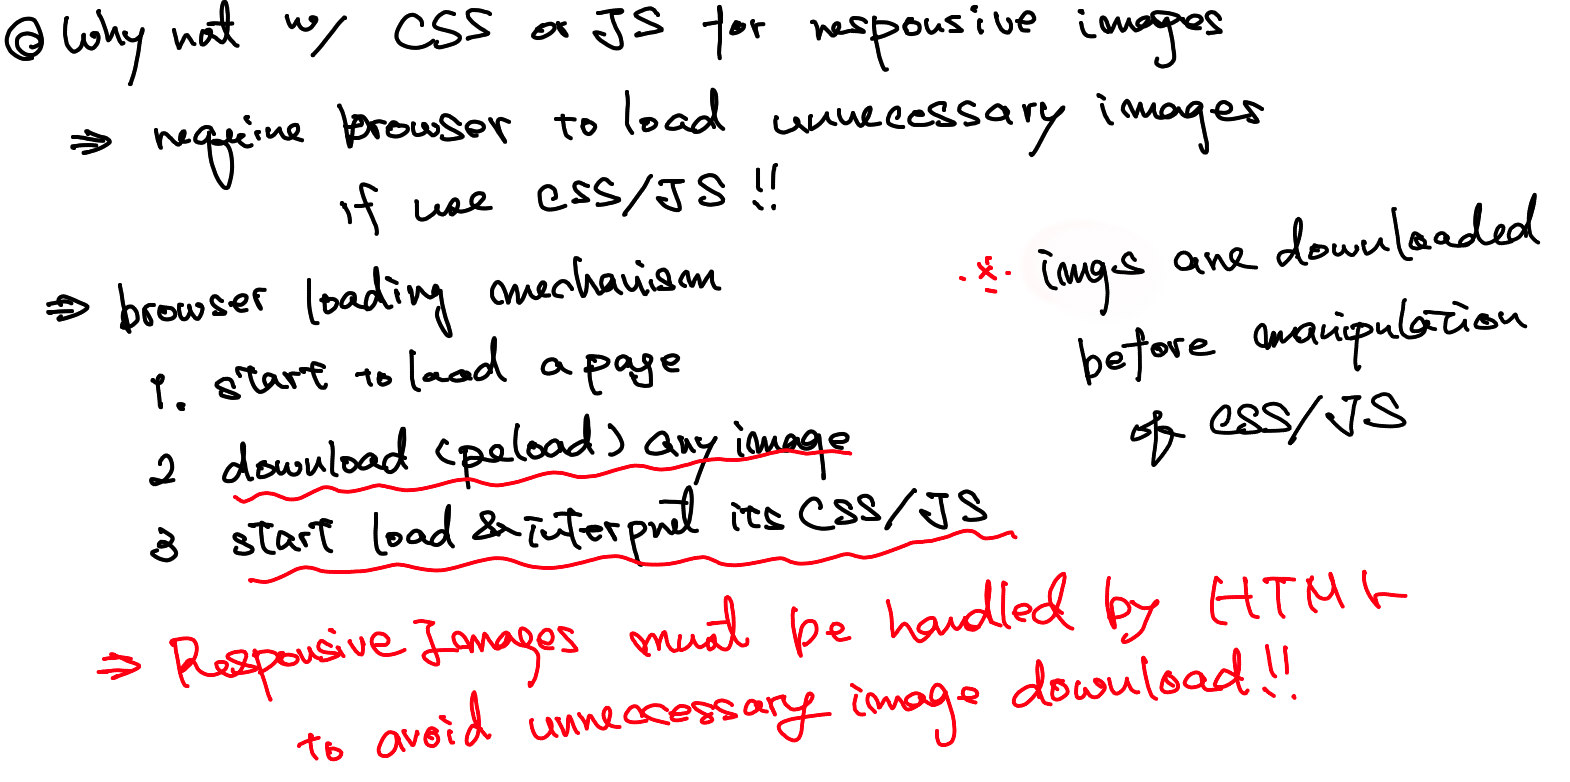 @ Why not w/ CSS or JS for responsive images
⇒ require browser to load unnecessary images
if use CSS/JS !!
⇒ browser loading mechanism
1. start to load a page
2 download (peload) any image
3 start load & interpret its CSS/JS
※ imgs are downloaded
before manipulation
of CSS/JS
⇒ Responsive Images must be handled by HTML
to avoid unneccessary image download!!